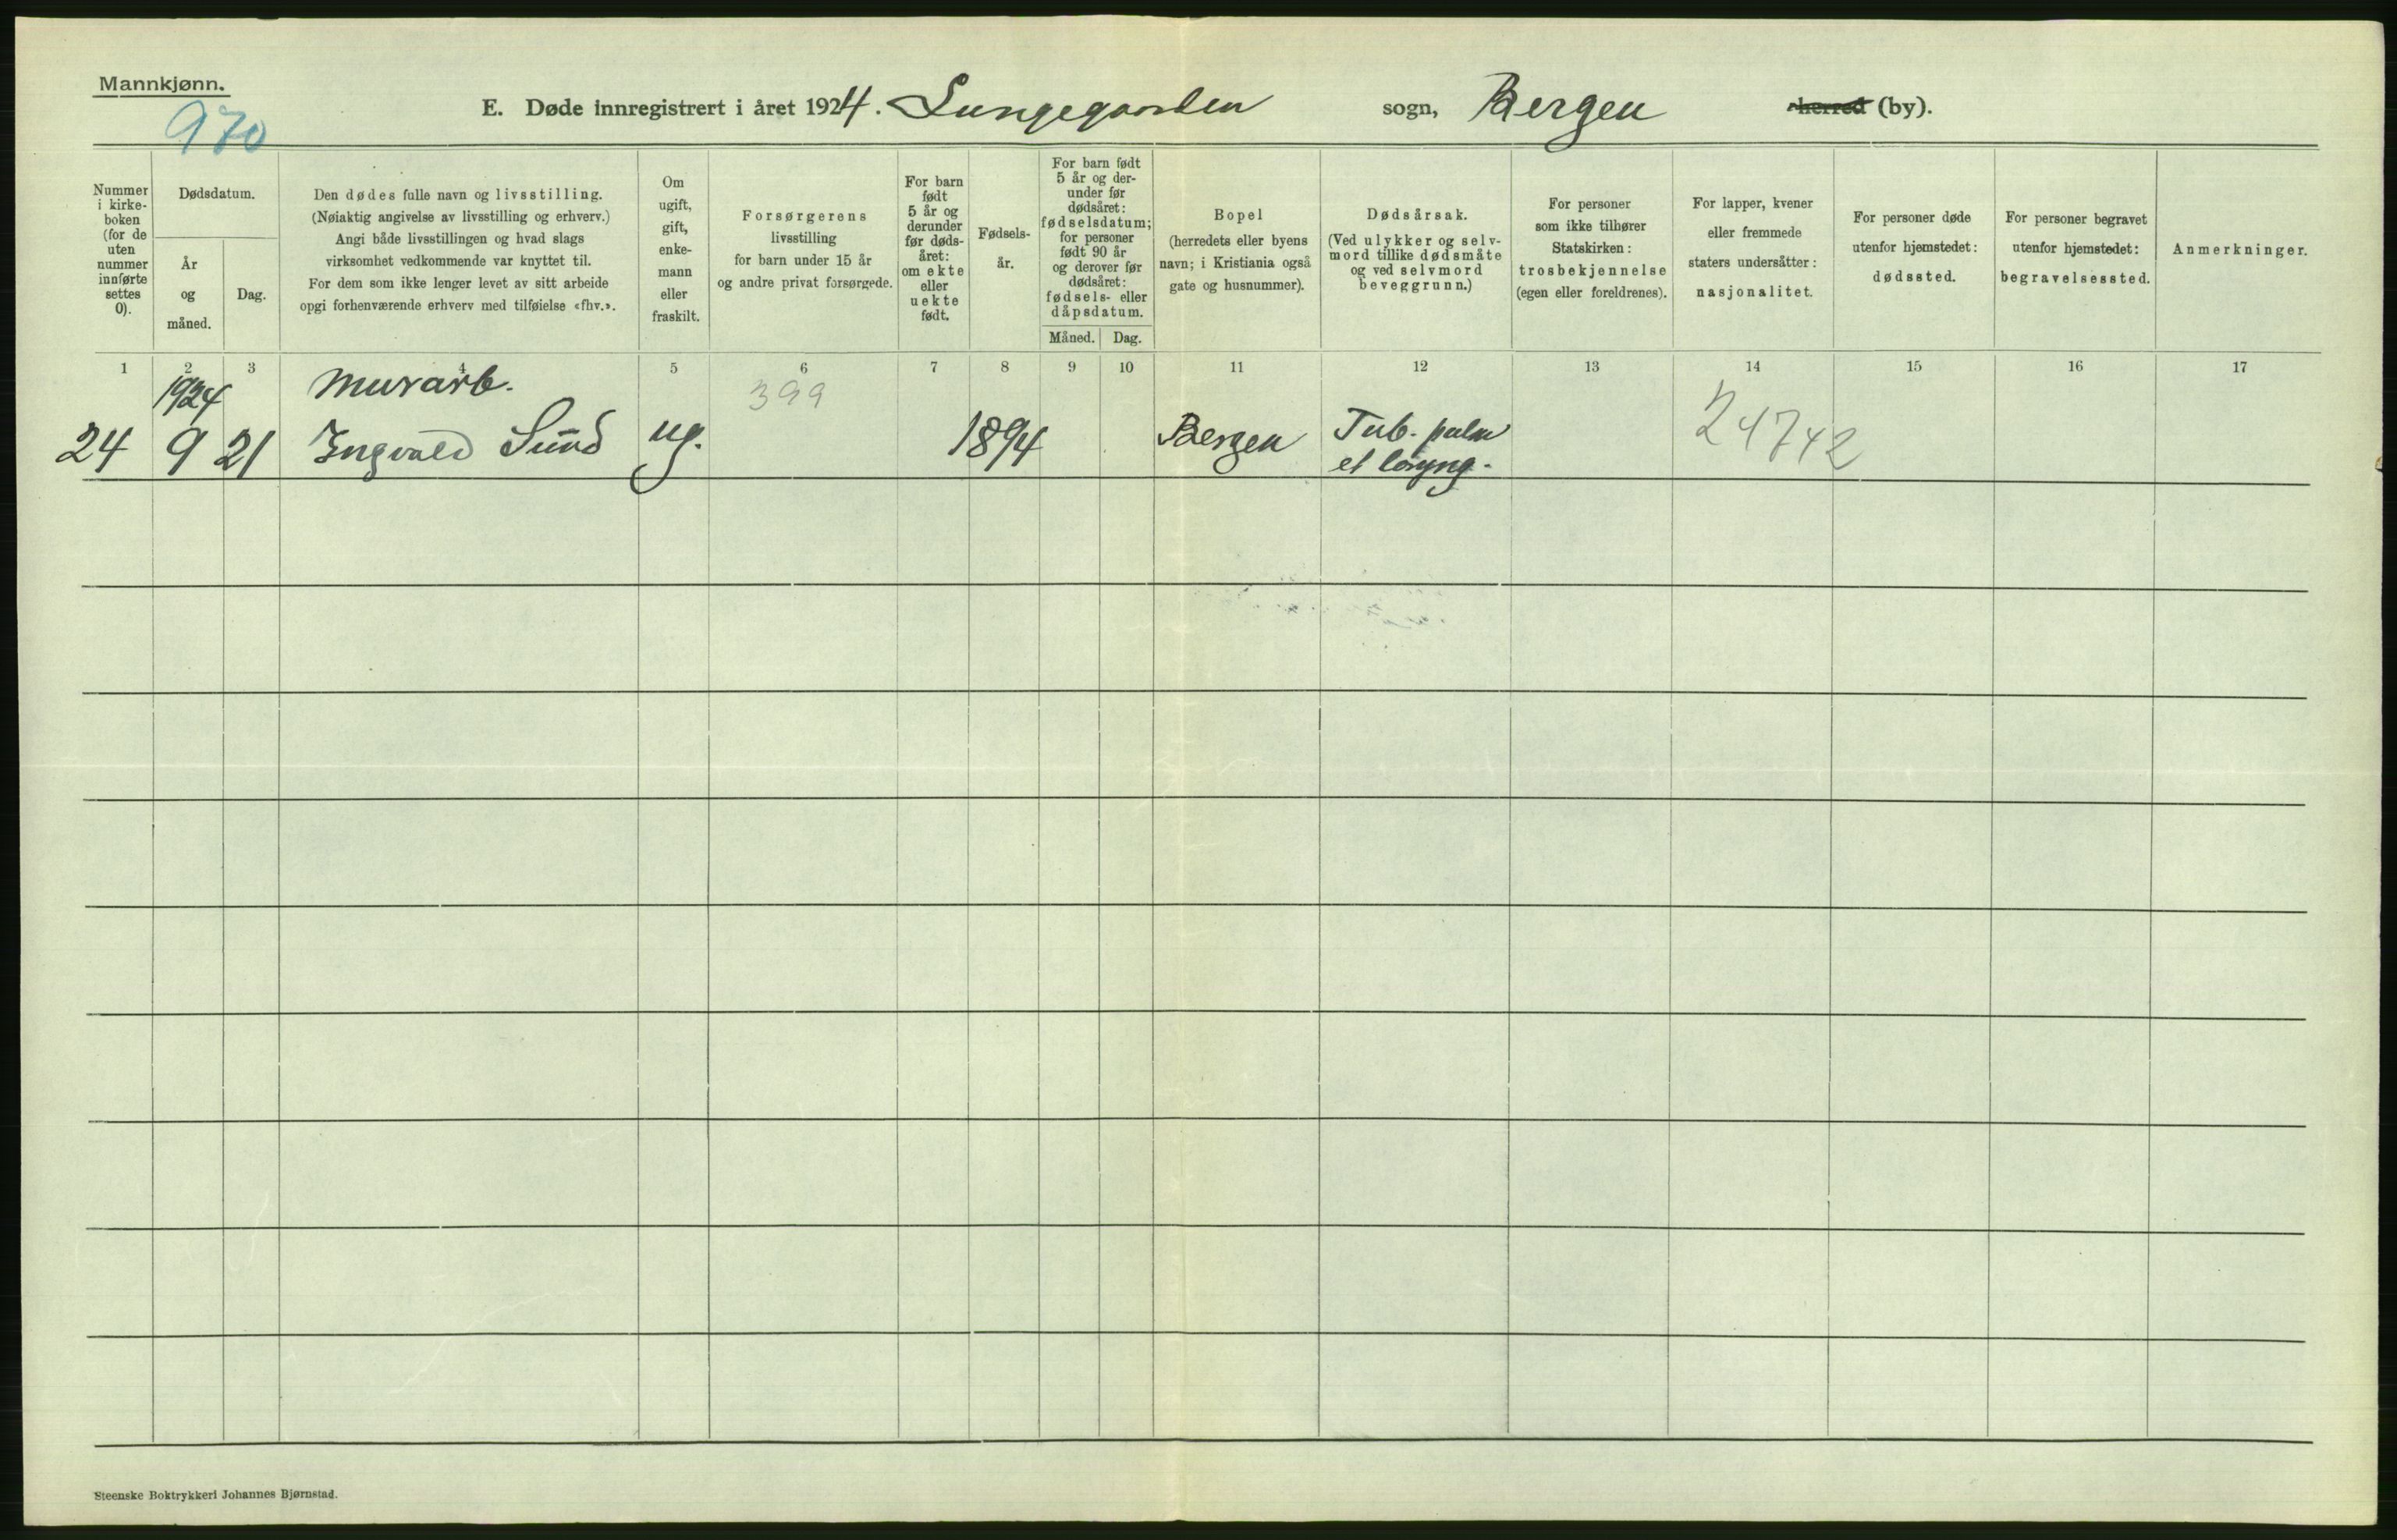 Mannkjønn.
970
E. Døde innregistrert i året 1924. Lungegaarden sogn, Bergen herred (by).
Nummer
i kirke-
boken
(for de
uten
nummer
innførte
settes
0).
Dødsdatum.
År
og
måned.
Dag.
Den dødes fulle navn og livsstilling.
(Nøiaktig angivelse av livsstilling og erhverv.)
Angi både livsstillingen og hvad slags
virksomhet vedkommende var knyttet til.
For dem som ikke lenger levet av sitt arbeide
opgi forhenværende erhverv med tilføielse «fhv.».
Om
ugift,
gift,
enke-
mann
eller
fraskilt.
Forsørgerens
livsstilling
for barn under 15 år
og andre privat forsørgede.
For barn
født
5 år og
derunder
før døds-
året:
om ekte
eller
uekte
født.
Fødsels-
år.
For barn født
5 år og der-
under før
dødsåret:
fødselsdatum;
for personer
født 90 år
og derover før
dødsåret:
fødsels- eller
dåpsdatum.
Måned. Dag.
Bopel
(herredets eller byens
navn; i Kristiania også
gate og husnummer).
Dødsårsak.
(Ved ulykker og selv-
mord tillike dødsmåte
og ved selvmord
beveggrunn.)
For personer
som ikke tilhører
Statskirken:
trosbekjennelse
(egen eller foreldrenes).
For lapper, kvener
eller fremmede
staters undersåtter:
nasjonalitet.
For personer døde
utenfor hjemstedet:
dødssted.
For personer begravet
utenfor hjemstedet:
begravelsessted.
Anmerkninger.
1 2 3 4 5 6 7 8 9 10 11 12 13 14 15 16 17
1924 Murarb. 399
24 9 21 Ingvald Sund ug. 1894 Bergen Tub. pulm 24742
et laryng.
Steenske Boktrykkeri Johannes Bjørnstad.